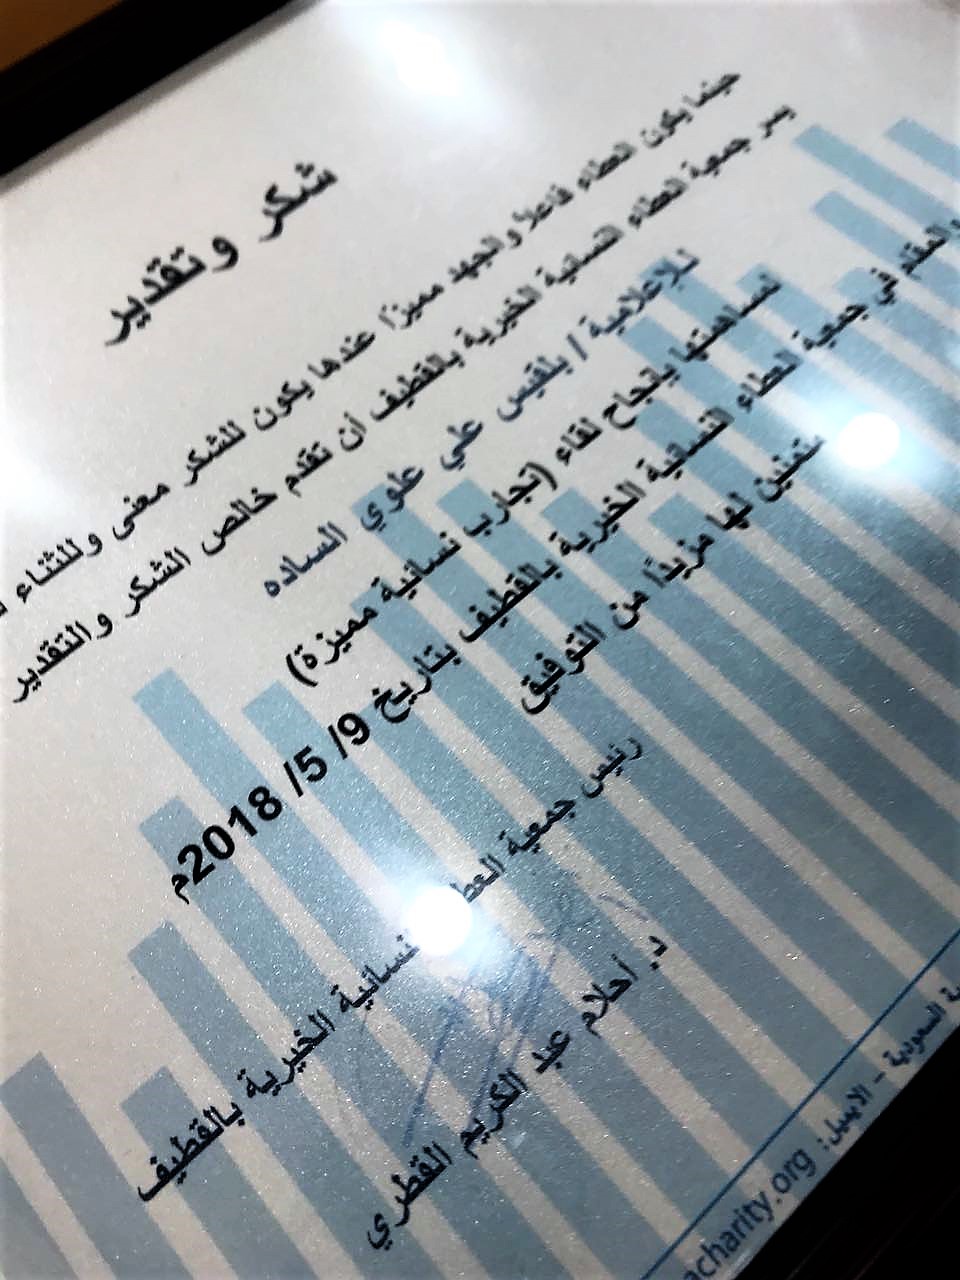 شكر وتقدير
حينما يكون العطاء فاعلاً والجهد مميزًا عندها يكون للشكر معنى وللثناء
يسر جمعية العطاء النسائية الخيرية بالقطيف أن تقدم خالص الشكر والتقدير
للإعلامية / بلقيس علي علوي الساده
لمساهمتها بإنجاح لقاء (تجارب نسائية مميزة)
والمقام في جمعية العطاء النسائية الخيرية بالقطيف بتاريخ 9/ 5/ 2018م
متمنين لها مزيدًا من التوفيق
رئيس جمعية العطاء النسائية الخيرية بالقطيف
د. أحلام عبد الكريم القطري
السعودية – الايميل:
acharity.org